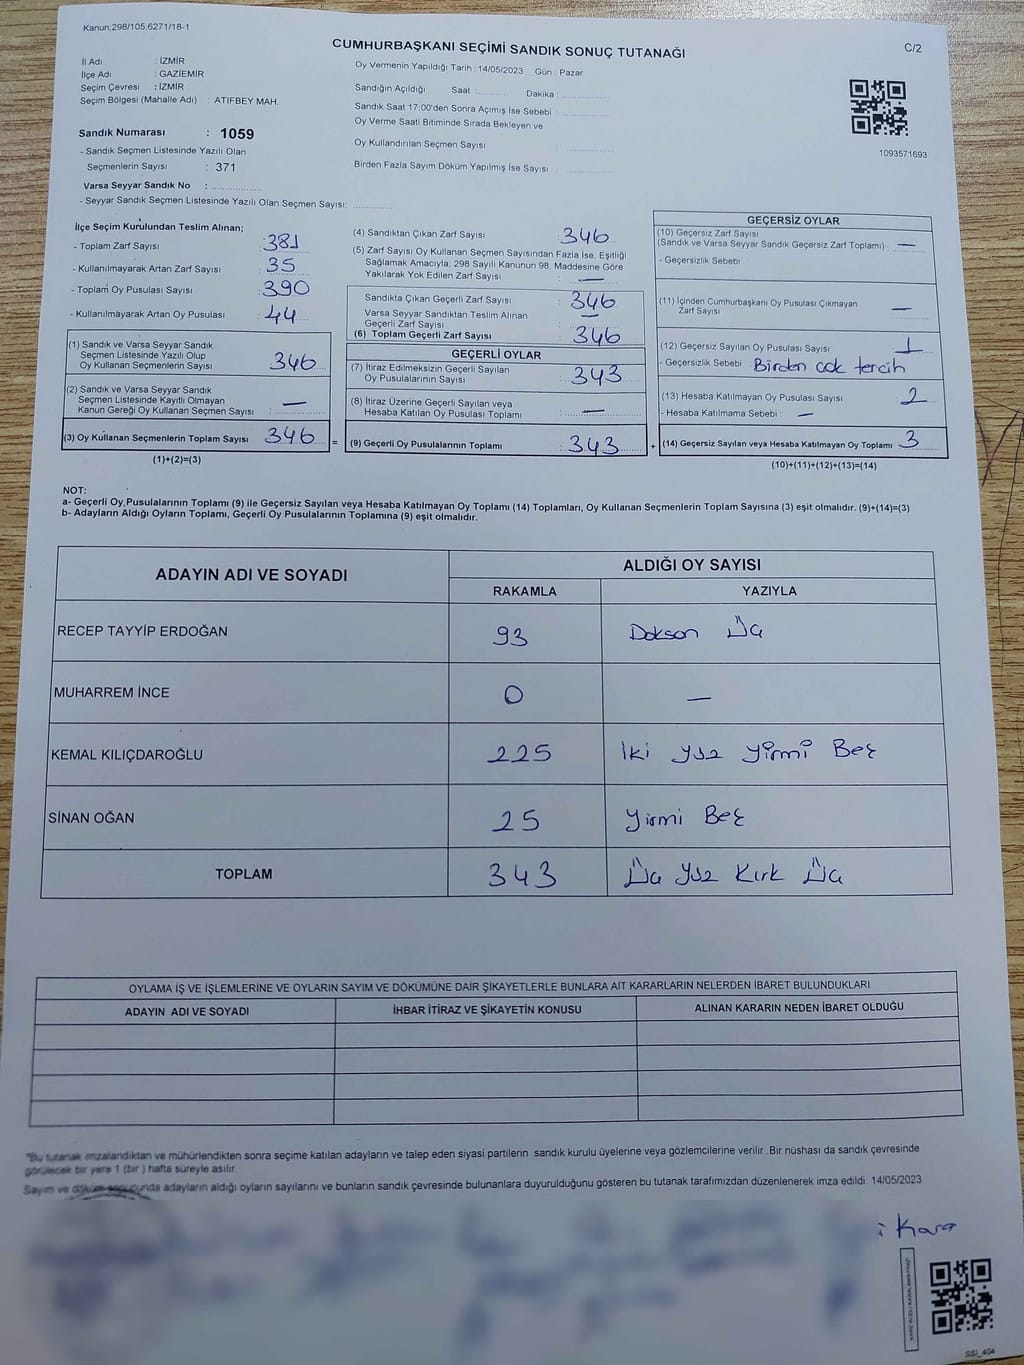 Kanun;298/105;6271/18-1
CUMHURBAŞKANI SEÇİMİ SANDIK SONUÇ TUTANAĞI
C/2
İl Adı : İZMİR
İlçe Adı : GAZİEMİR
Seçim Çevresi : İZMİR
Seçim Bölgesi (Mahalle Adı) : ATIFBEY MAH.
Sandık Numarası : 1059
- Sandık Seçmen Listesinde Yazılı Olan
Seçmenlerin Sayısı : 371
Varsa Seyyar Sandık No : ..................
- Seyyar Sandık Seçmen Listesinde Yazılı Olan Seçmen Sayısı: ............
Oy Vermenin Yapıldığı Tarih : 14/05/2023 Gün : Pazar
Sandığın Açıldığı Saat ............ Dakika ................
Sandık Saat 17:00'den Sonra Açımış İse Sebebi : ................
Oy Verme Saati Bitiminde Sırada Bekleyen ve
Oy Kullandırılan Seçmen Sayısı : ................
Birden Fazla Sayım Döküm Yapılmış İse Sayısı : ................
1093571693
İlçe Seçim Kurulundan Teslim Alınan;
- Toplam Zarf Sayısı : 381
- Kullanılmayarak Artan Zarf Sayısı : 35
- Toplam Oy Pusulası Sayısı : 390
- Kullanılmayarak Artan Oy Pusulası : 44
(1) Sandık ve Varsa Seyyar Sandık
Seçmen Listesinde Yazılı Olup
Oy Kullanan Seçmenlerin Sayısı : 346
(2) Sandık ve Varsa Seyyar Sandık
Seçmen Listesinde Kayıtlı Olmayan
Kanun Gereği Oy Kullanan Seçmen Sayısı : —
(3) Oy Kullanan Seçmenlerin Toplam Sayısı : 346
(1)+(2)=(3)
=
(4) Sandıktan Çıkan Zarf Sayısı : 346
(5) Zarf Sayısı Oy Kullanan Seçmen Sayısından Fazla İse, Eşitliği
Sağlamak Amacıyla; 298 Sayılı Kanunun 98. Maddesine Göre
Yakılarak Yok Edilen Zarf Sayısı : —
Sandıkta Çıkan Geçerli Zarf Sayısı : 346
Varsa Seyyar Sandıktan Teslim Alınan
Geçerli Zarf Sayısı : —
(6) Toplam Geçerli Zarf Sayısı : 346
GEÇERLİ OYLAR
(7) İtiraz Edilmeksizin Geçerli Sayılan
Oy Pusulalarının Sayısı : 343
(8) İtiraz Üzerine Geçerli Sayılan veya
Hesaba Katılan Oy Pusulası Toplamı : —
(9) Geçerli Oy Pusulalarının Toplamı : 343
+
GEÇERSİZ OYLAR
(10) Geçersiz Zarf Sayısı
(Sandık ve Varsa Seyyar Sandık Geçersiz Zarf Toplamı) : —
- Geçersizlik Sebebi
(11) İçinden Cumhurbaşkanı Oy Pusulası Çıkmayan
Zarf Sayısı : —
(12) Geçersiz Sayılan Oy Pusulası Sayısı : 1
- Geçersizlik Sebebi : Birden cok tercih
(13) Hesaba Katılmayan Oy Pusulası Sayısı : 2
- Hesaba Katılmama Sebebi : —
(14) Geçersiz Sayılan veya Hesaba Katılmayan Oy Toplamı : 3
(10)+(11)+(12)+(13)=(14)
NOT:
a- Geçerli Oy Pusulalarının Toplamı (9) ile Geçersiz Sayılan veya Hesaba Katılmayan Oy Toplamı (14) Toplamları, Oy Kullanan Seçmenlerin Toplam Sayısına (3) eşit olmalıdır. (9)+(14)=(3)
b- Adayların Aldığı Oyların Toplamı, Geçerli Oy Pusulalarının Toplamına (9) eşit olmalıdır.
ADAYIN ADI VE SOYADI
ALDIĞI OY SAYISI
RAKAMLA YAZIYLA
RECEP TAYYİP ERDOĞAN 93 Doksan Üç
MUHARREM İNCE 0 —
KEMAL KILIÇDAROĞLU 225 İki yüz yirmi Beş
SİNAN OĞAN 25 yirmi Beş
TOPLAM 343 Üç yüz Kırk Üç
OYLAMA İŞ VE İŞLEMLERİNE VE OYLARIN SAYIM VE DÖKÜMÜNE DAİR ŞİKAYETLERLE BUNLARA AİT KARARLARIN NELERDEN İBARET BULUNDUKLARI
ADAYIN ADI VE SOYADI İHBAR İTİRAZ VE ŞİKAYETİN KONUSU ALINAN KARARIN NEDEN İBARET OLDUĞU
*Bu tutanak imzalandıktan ve mühürlendikten sonra seçime katılan adayların ve talep eden siyasi partilerin sandık kurulu üyelerine veya gözlemcilerine verilir. Bir nüshası da sandık çevresinde
görülecek bir yere 1 (bir) hafta süreyle asılır.
Sayım ve döküm sonucunda adayların aldığı oyların sayılarını ve bunların sandık çevresinde bulunanlara duyurulduğunu gösteren bu tutanak tarafımızdan düzenlenerek imza edildi. 14/05/2023
i Kara
KARE KODU KARALAMAYINIZ!